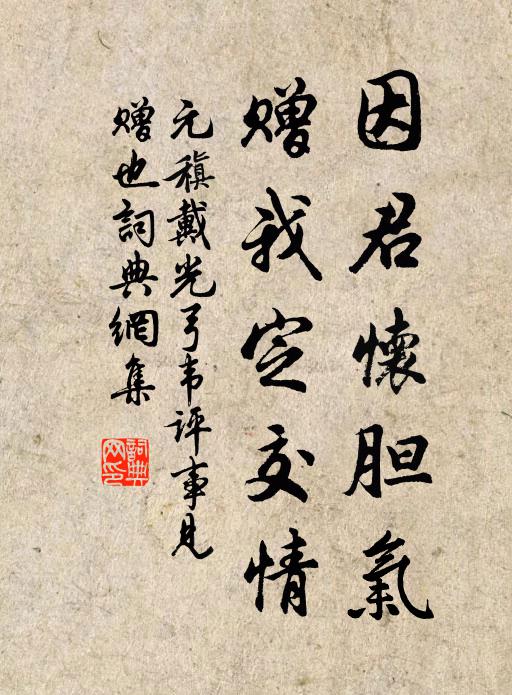 因君懷胆氣
贈我定交情
元稹戴光弓韦評事見
贈也詞典網集
詞典网印